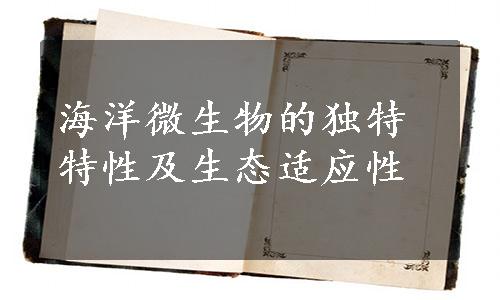 海洋微生物的独特
特性及生态适应性